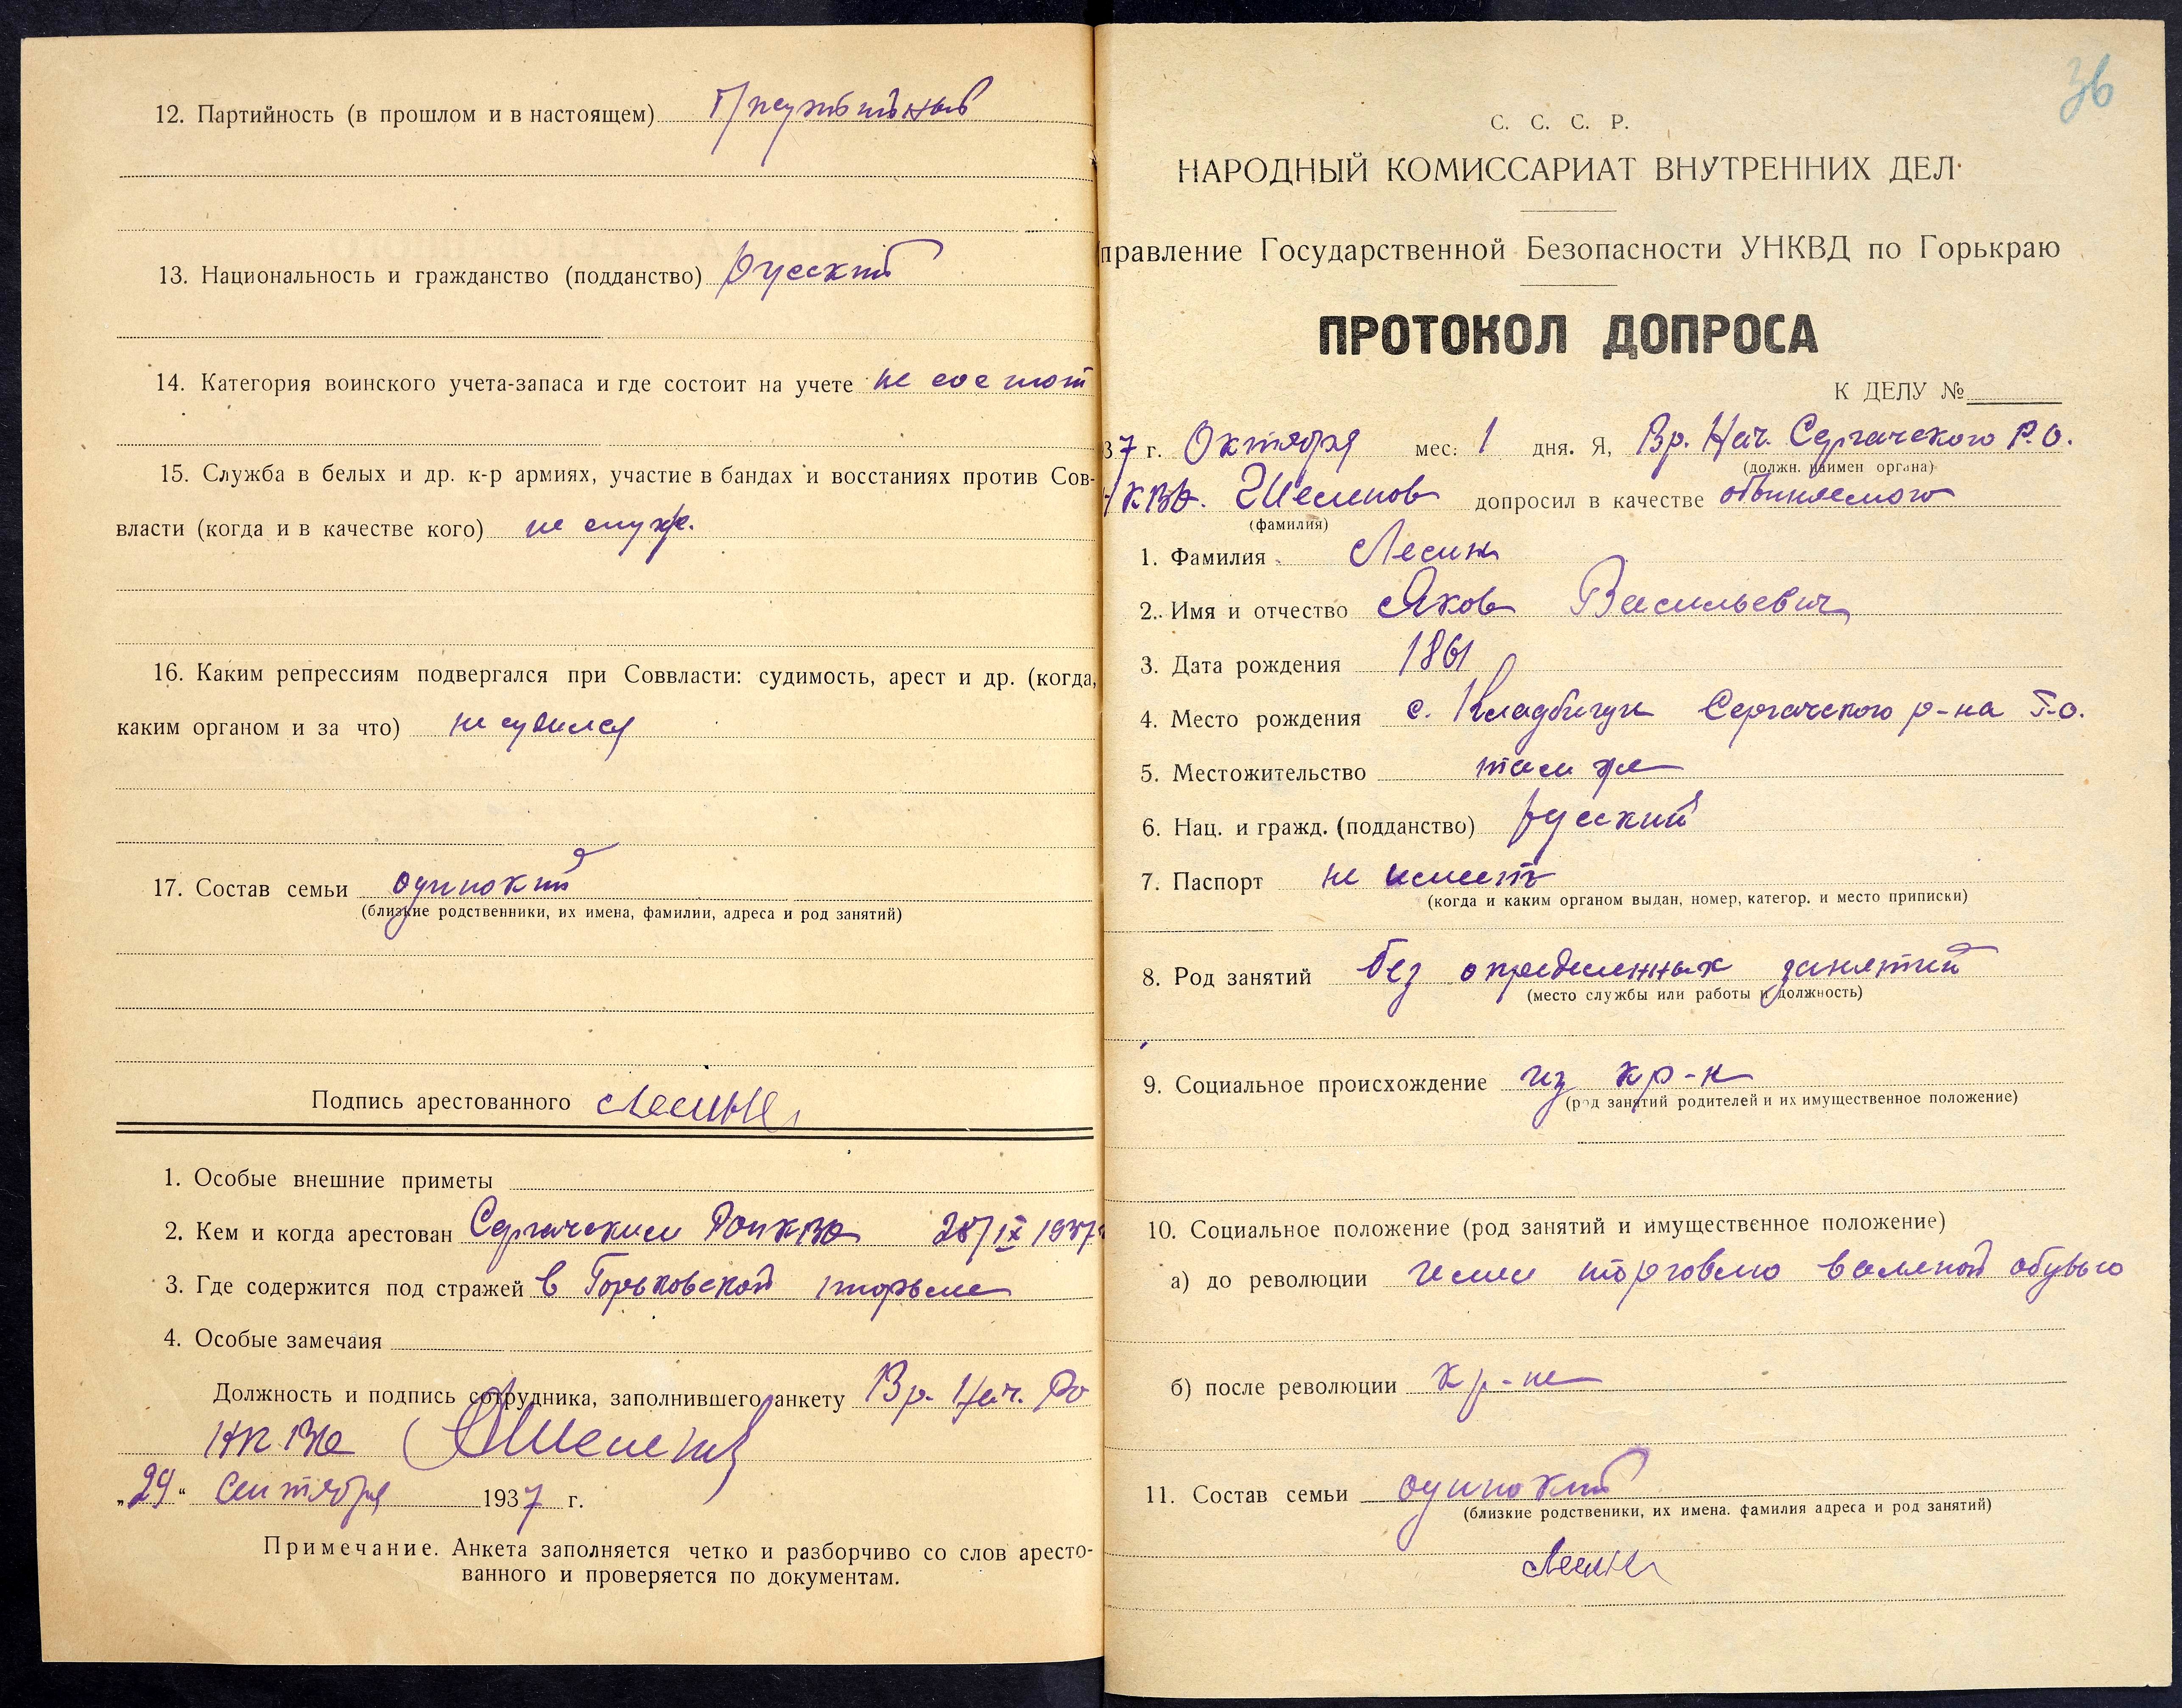 12. Партийность (в прошлом и в настоящем)
13. Национальность и гражданство (подданство) Русский
14. Категория воинского учета-запаса и где состоит на учете не состоит
15. Служба в белых и др. к-р армиях, участие в бандах и восстаниях против Сов-
власти (когда и в качестве кого) не служ.
16. Каким репрессиям подвергался при Соввласти: судимость, арест и др. (когда,
каким органом и за что) не судился
17. Состав семьи одинокий
(близкие родственники, их имена, фамилии, адреса и род занятий)
Подпись арестованного Лесин
1. Особые внешние приметы
2. Кем и когда арестован Сергачским РОНКВД 28/IX 1937
3. Где содержится под стражей в Горьковской тюрьме
4. Особые замечаия
Должность и подпись сотрудника, заполнившего анкету Вр. Нач. РО
НКВД
„29“ Сентября 1937 г.
Примечание. Анкета заполняется четко и разборчиво со слов аресто-
ванного и проверяется по документам.
36
С. С. С. Р.
НАРОДНЫЙ КОМИССАРИАТ ВНУТРЕННИХ ДЕЛ
правление Государственной Безопасности УНКВД по Горькраю
ПРОТОКОЛ ДОПРОСА
К ДЕЛУ №
37 г. Октября мес. 1 дня. Я, Вр. Нач. Сергачского Р.О.
(должн. наимен органа)
НКВД. допросил в качестве обвиняемого
(фамилия)
1. Фамилия Лесин
2. Имя и отчество Яков Васильевич
3. Дата рождения 1861
4. Место рождения с. Кладбищи Сергачского р-на Г.О.
5. Местожительство там же
6. Нац. и гражд. (подданство) русский
7. Паспорт не имеет
(когда и каким органом выдан, номер, категор. и место приписки)
8. Род занятий без определенных занятий
(место службы или работы и должность)
9. Социальное происхождение из кр-н
(род занятий родителей и их имущественное положение)
10. Социальное положение (род занятий и имущественное положение)
а) до революции имел торговлю валеной обувью
б) после революции кр-не
11. Состав семьи одинокий
(близкие родственики, их имена. фамилия адреса и род занятий)
Лесин